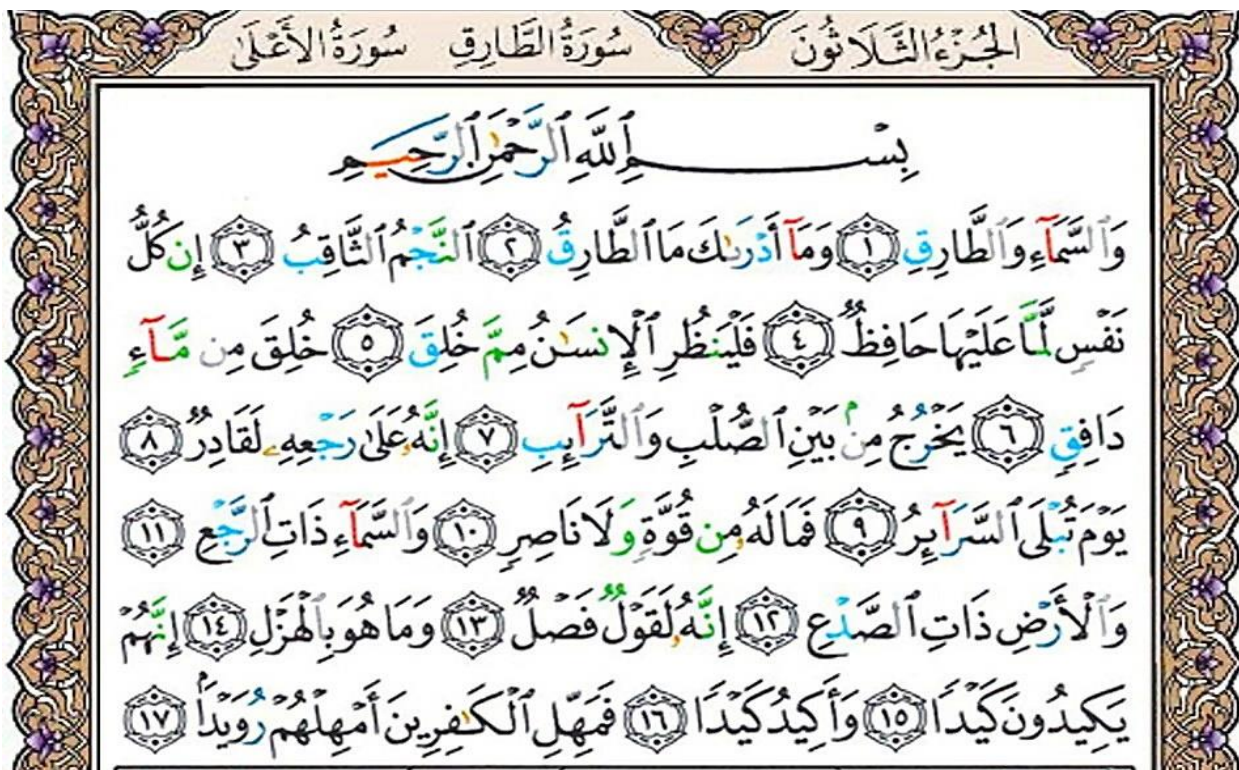 الجُزْءُ الثَّلَاثُونَ سُورَةُ الطَّارِقِ سُورَةُ الأَعْلَىٰ
بِسْمِ ٱللَّهِ ٱلرَّحْمَٰنِ ٱلرَّحِيمِ
وَٱلسَّمَآءِ وَٱلطَّارِقِ ١ وَمَآ أَدْرَىٰكَ مَا ٱلطَّارِقُ ٢ ٱلنَّجْمُ ٱلثَّاقِبُ ٣ إِن كُلُّ
نَفْسٍ لَّمَّا عَلَيْهَا حَافِظٌ ٤ فَلْيَنظُرِ ٱلْإِنسَٰنُ مِمَّ خُلِقَ ٥ خُلِقَ مِن مَّآءٍ
دَافِقٍ ٦ يَخْرُجُ مِنۢ بَيْنِ ٱلصُّلْبِ وَٱلتَّرَآئِبِ ٧ إِنَّهُۥ عَلَىٰ رَجْعِهِۦ لَقَادِرٌ ٨
يَوْمَ تُبْلَى ٱلسَّرَآئِرُ ٩ فَمَا لَهُۥ مِن قُوَّةٍ وَلَا نَاصِرٍ ١٠ وَٱلسَّمَآءِ ذَاتِ ٱلرَّجْعِ ١١
وَٱلْأَرْضِ ذَاتِ ٱلصَّدْعِ ١٢ إِنَّهُۥ لَقَوْلٌ فَصْلٌ ١٣ وَمَا هُوَ بِٱلْهَزْلِ ١٤ إِنَّهُمْ
يَكِيدُونَ كَيْدًا ١٥ وَأَكِيدُ كَيْدًا ١٦ فَمَهِّلِ ٱلْكَٰفِرِينَ أَمْهِلْهُمْ رُوَيْدًۢا ١٧